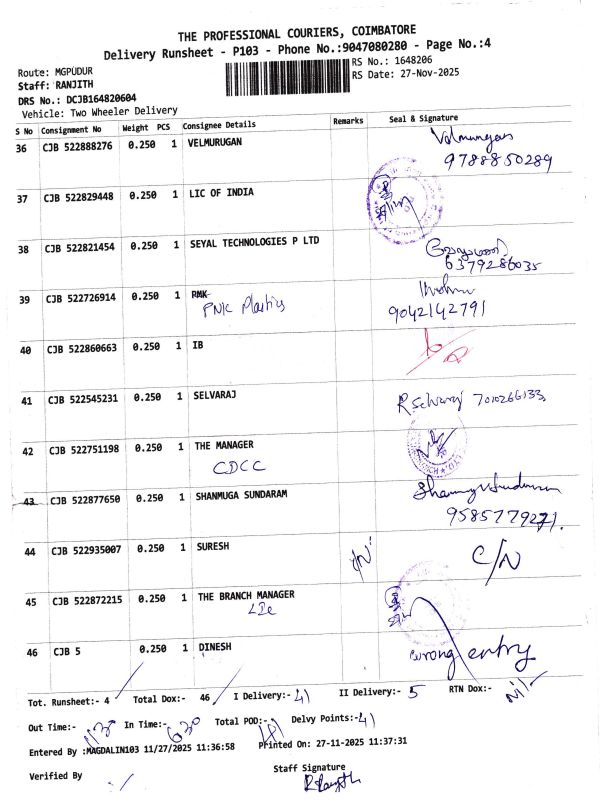 THE PROFESSIONAL COURIERS, COIMBATORE
Delivery Runsheet - P103 - Phone No.:9047080280 - Page No.:4
Route: MGPUDUR
RS No.: 1648206
Staff: RANJITH
RS Date: 27-Nov-2025
DRS No.: DCJB164820604
Vehicle: Two Wheeler Delivery
S No Consignment No Weight PCS Consignee Details Remarks Seal & Signature
36 CJB 522888276 0.250 1 VELMURUGAN Velmurugan
9788850289
37 CJB 522829448 0.250 1 LIC OF INDIA
38 CJB 522821454 0.250 1 SEYAL TECHNOLOGIES P LTD
6379286035
39 CJB 522726914 0.250 1 RMK
PNK Plastics 9042142791
40 CJB 522860663 0.250 1 IB
41 CJB 522545231 0.250 1 SELVARAJ R Selvaraj 7010266133
42 CJB 522751198 0.250 1 THE MANAGER
CDCC
43 CJB 522877650 0.250 1 SHANMUGA SUNDARAM Shanmuga Sundaram
9585779271.
44 CJB 522935007 0.250 1 SURESH C/N C/N
45 CJB 522872215 0.250 1 THE BRANCH MANAGER
LIC
46 CJB 5 0.250 1 DINESH wrong entry
Tot. Runsheet:- 4 Total Dox:- 46 I Delivery:- 41 II Delivery:- 5 RTN Dox:- Nil
Out Time:- In Time:- 630 Total POD:- Delvy Points:- 41
Entered By :MAGDALIN103 11/27/2025 11:36:58 Printed On: 27-11-2025 11:37:31
Staff Signature
Verified By